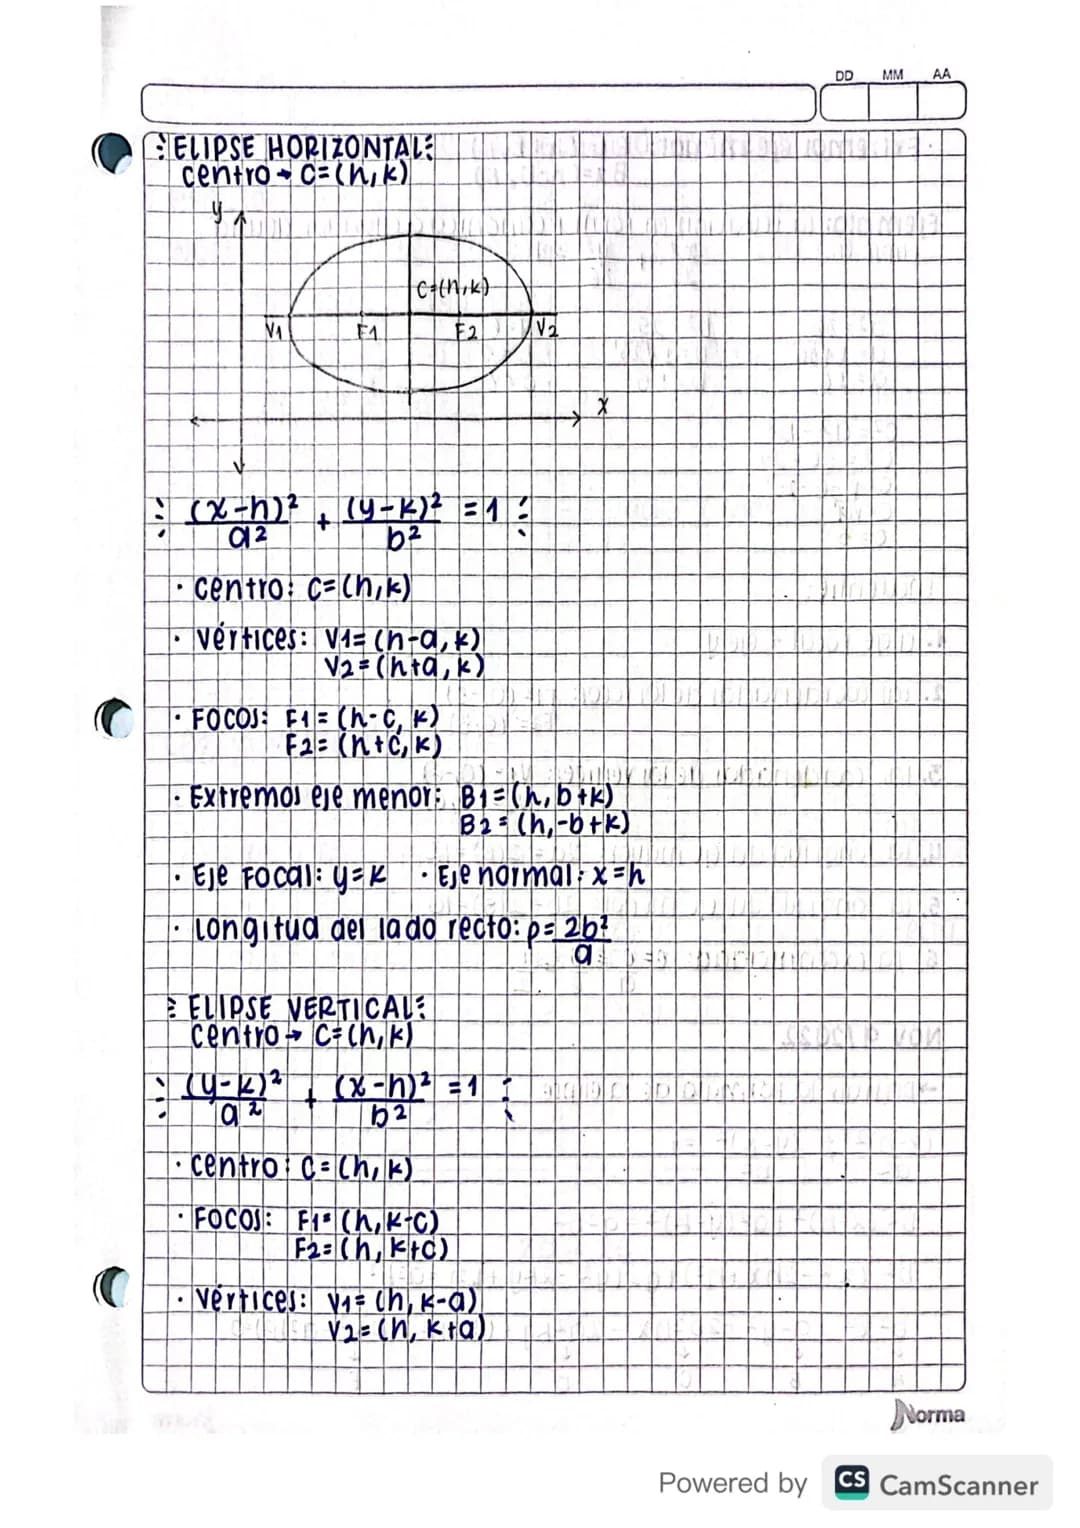 DD MM AA
ELIPSE HORIZONTAL:
centro → C=(h,k)
y
C=(h,k)
V1 F1 F2 V2
x
(x-h)²/a² + (y-k)²/b² = 1
· centro: C=(h,k)
· vértices: V1=(h-a,k)
V2=(h+a,k)
· FOCOS: F1=(h-c,k)
F2=(h+c,k)
· Extremos eje menor: B1=(h,b+k)
B2=(h,-b+k)
· Eje Focal: y=k · Eje normal: x=h
· Longitud del lado recto: p=2b²/a
ELIPSE VERTICAL:
centro → C=(h,k)
(y-k)²/a² + (x-h)²/b² =1
· centro: C=(h,k)
· FOCOS: F1=(h,k-c)
F2=(h,k+c)
· vértices: V1=(h,k-a)
V2=(h,k+a)
Norma
Powered by CS CamScanner